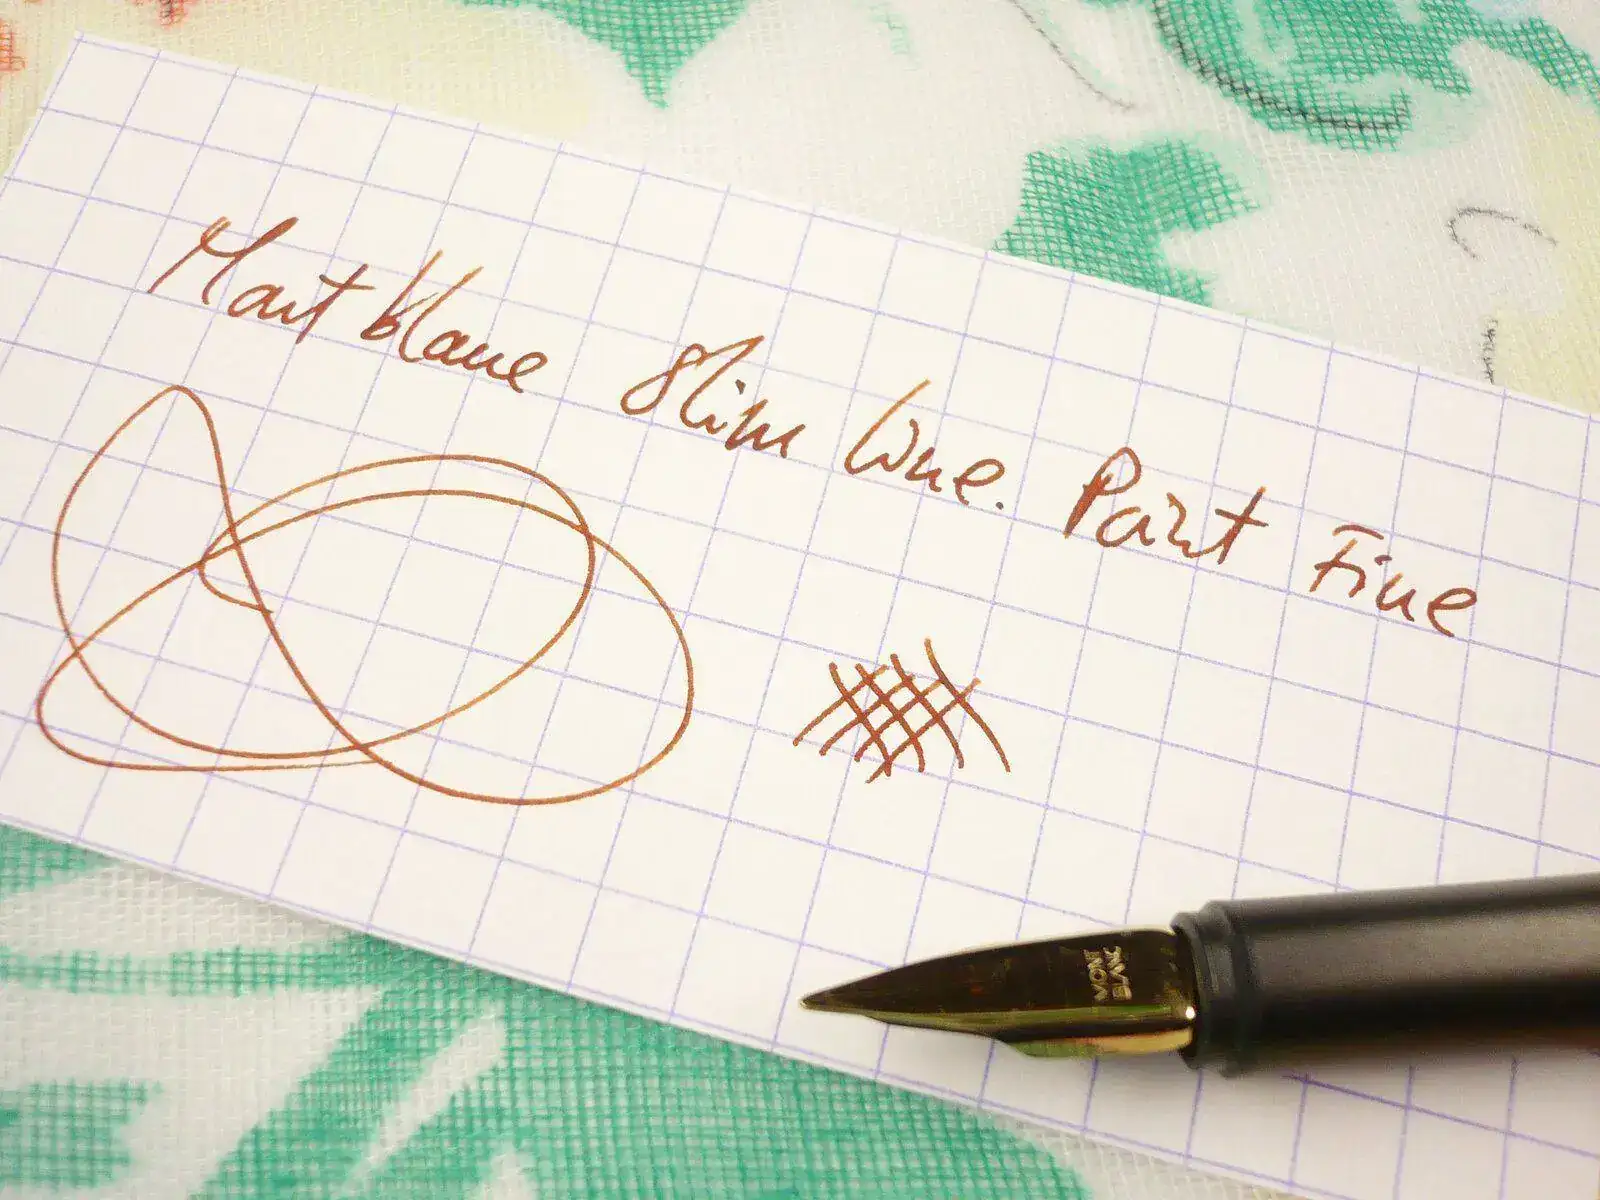 Mont blanc Slim Line. Point Fine
MONT
BLANC